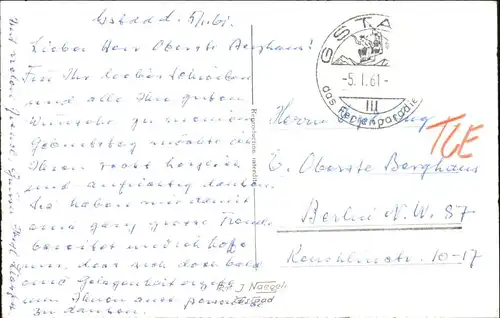 Gstaad d. 5/1.61.
Lieber Herr Oberste Berghaus!
Für Ihr liebes Schreiben
und alle Ihre guten
Wünsche zu meinem
Geburtstag möchte ich
Ihnen recht herzlich
und aufrichtig danken.
Sie haben mir damit
eine ganz grosse Freude
bereitet und ich hoffe
nun, dass sich doch bald
eine Gelegenheit ergibt
um Ihnen auch persönlich
zu danken.
Mit vielen
GSTA
-5.1.61-
III
das Ferienparadies
Reproduction interdite
J. Naegeli
Gstaad
Herrn
TCE
E. Oberste Berghaus
Berlin N.W. 87
10-17